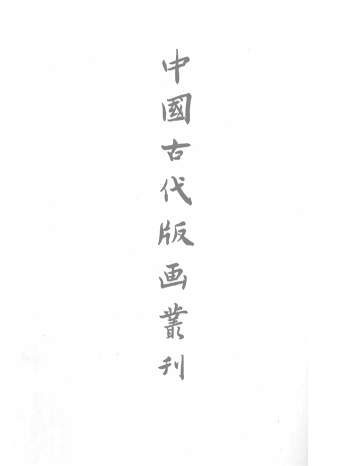 中國古代版画叢刊